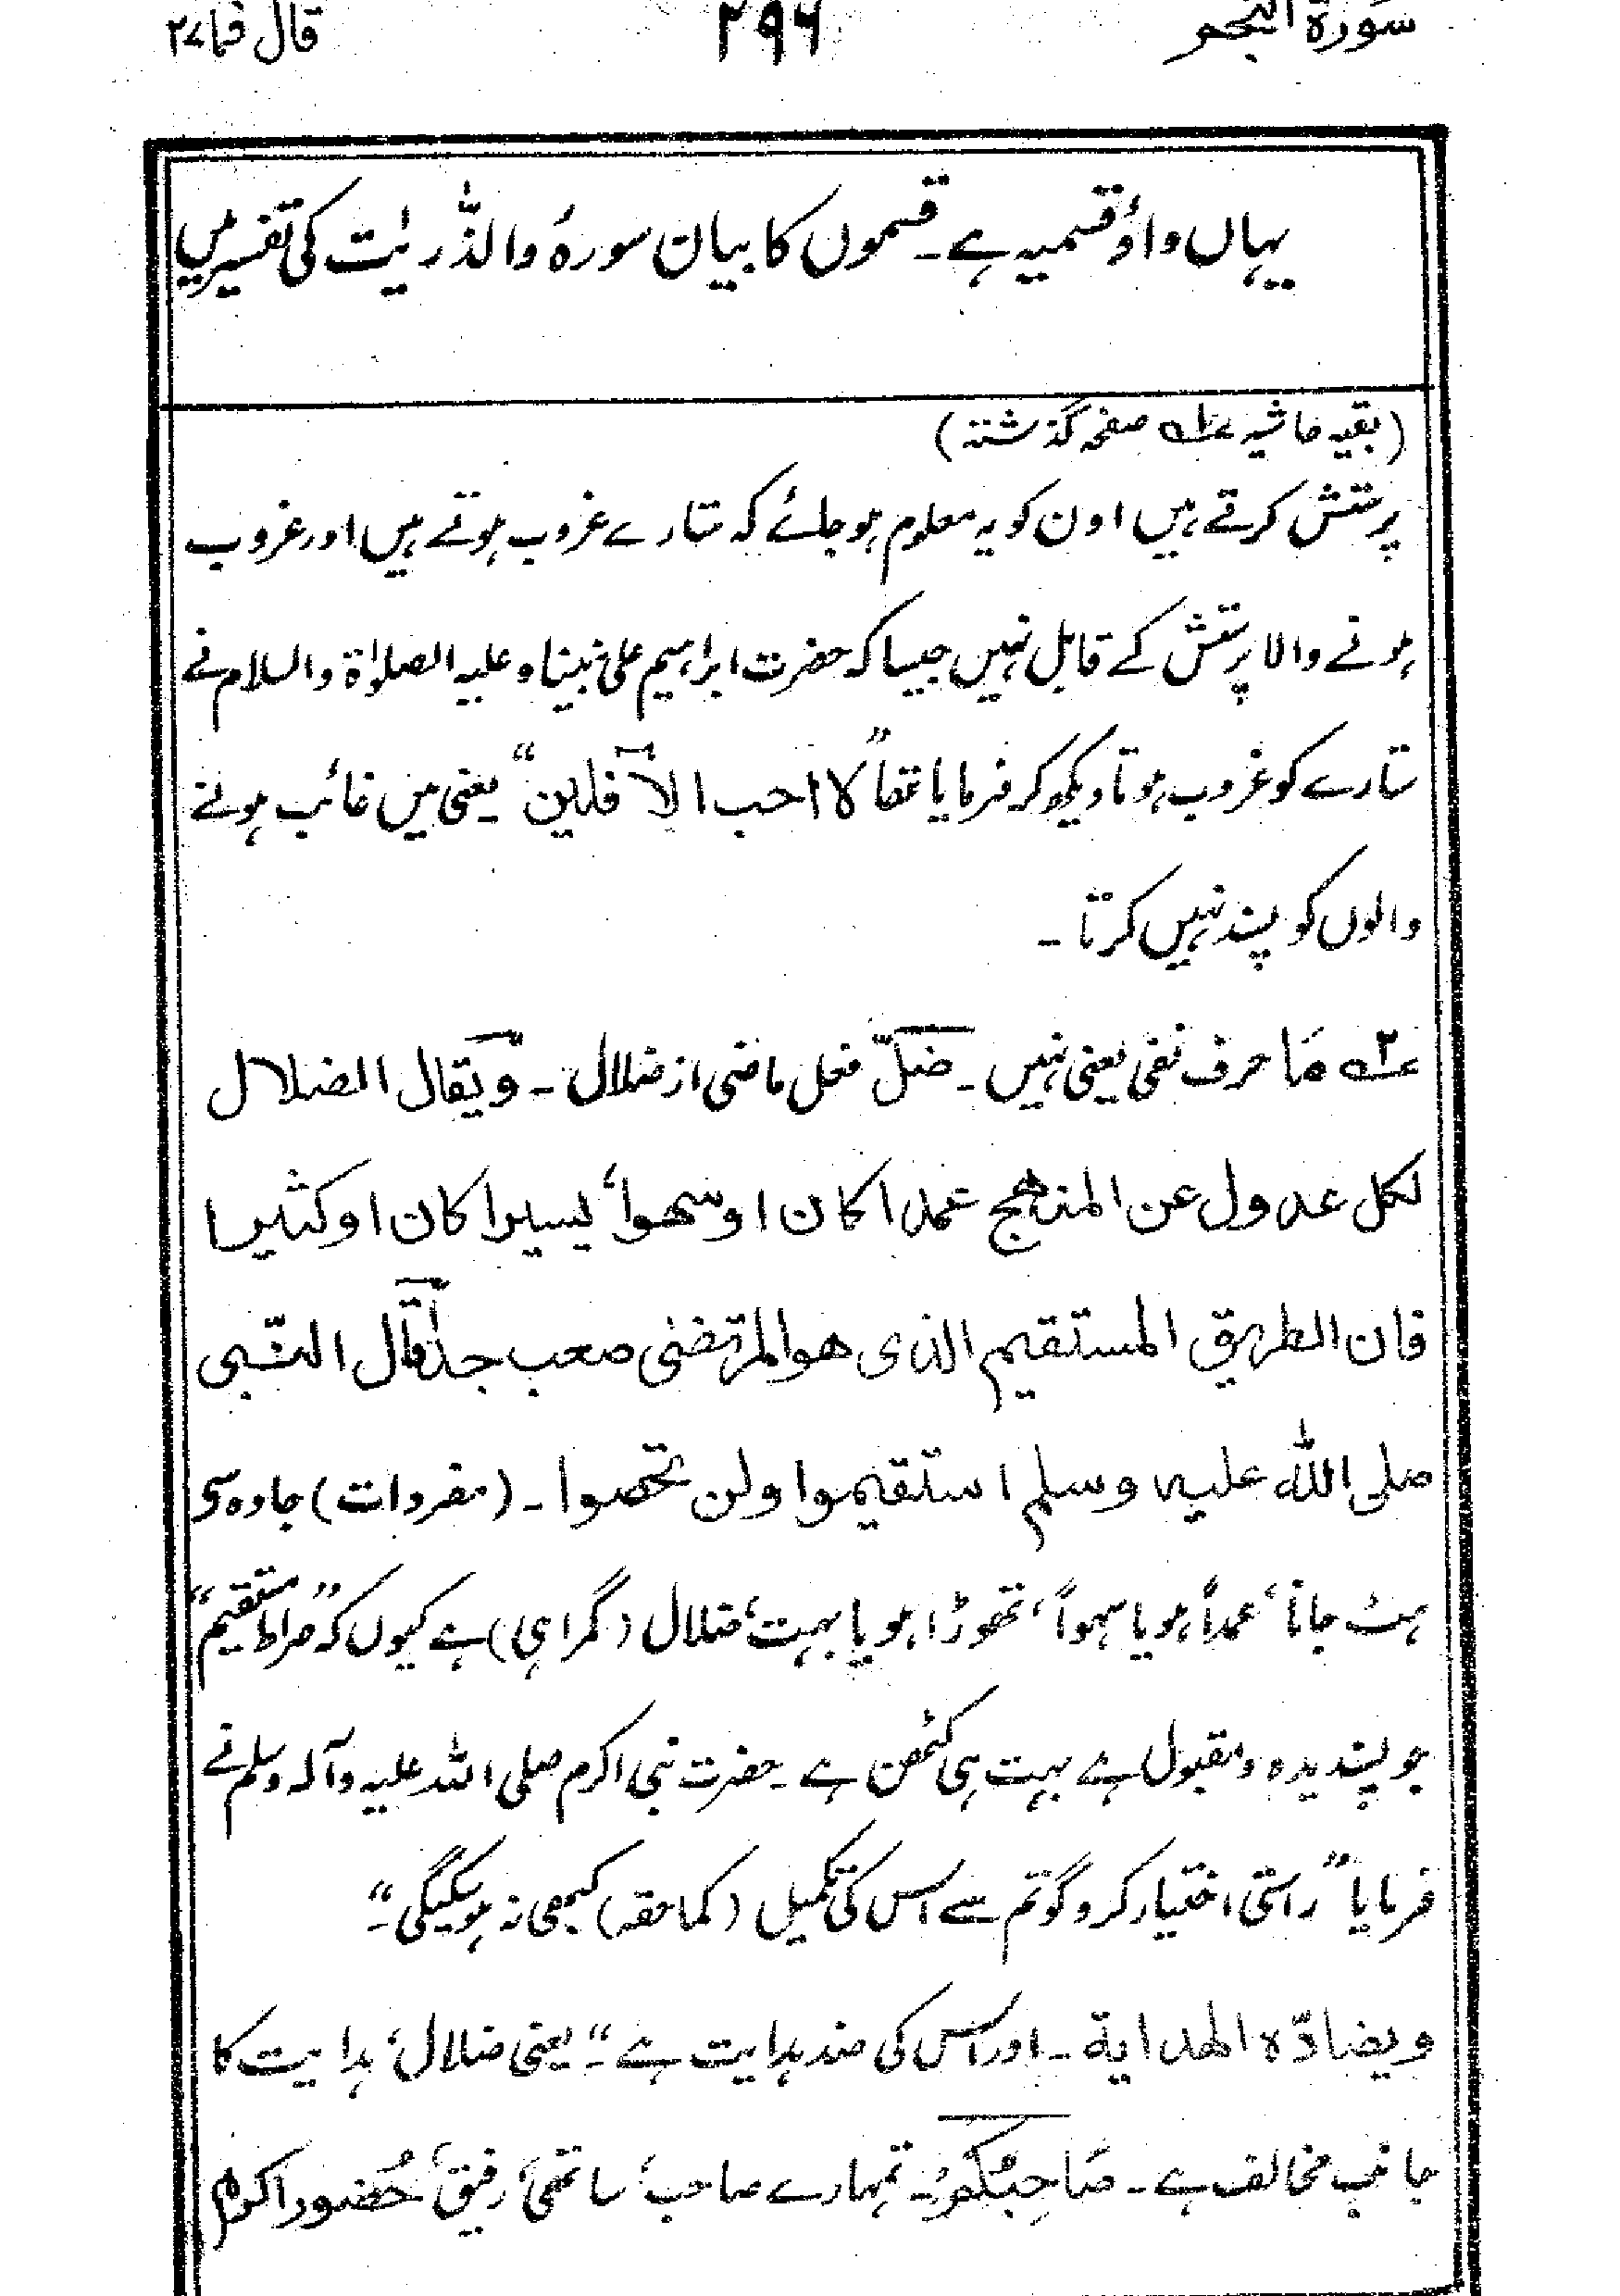 سورة النجم ۲۹۶ قال فما ۲۷
یہاں واؤ قسمیہ ہے۔ قسموں کا بیان سورۂ والذّٰریٰت کی تفسیر میں
(بقیہ حاشیہ ؎۱ صفحہ گذشتہ)
پرستش کرتے ہیں اون کو یہ معلوم ہوجائے کہ ستارے غروب ہوتے ہیں اور غروب
ہونے والا پرستش کے قابل نہیں جیسا کہ حضرت ابراہیم علی نبینا و علیہ الصلوٰۃ والسلام نے
ستارے کو غروب ہوتا دیکھ کر فرمایا تھا ”لا احب الآفلین“ یعنی میں غائب ہونے
والوں کو پسند نہیں کرتا۔
؎۲ مَا حرف نفی یعنی نہیں۔ ضَلَّ فعل ماضی از ضلال۔ ویقال الضلال
لکل عدول عن المنهج عمدا کان او سهوا، یسیرا کان او کثیرا
فان الطریق المستقیم الذی هو المرتضیٰ صعب جداً قال النّبی
صلی اللہ علیہ وسلم استقیموا ولن تحصوا۔ (مفردات) جادہ سی
ہٹ جانا، عمداً ہو یا سہواً، تھوڑا ہو یا بہت، ضلال (گمراہی) ہے کیوں کہ ”صراط مستقیم“
جو پسندیدہ و مقبول ہے بہت ہی کٹھن ہے۔ حضرت نبی اکرم صلی اللہ علیہ وآلہ وسلم نے
فرمایا ”راستی اختیار کرو گو تم سے اس کی تکمیل (کماحقہ) کبھی نہ ہوسکیگی۔“
ویضادّہ الهدایة۔ اور اس کی ضد ہدایت ہے۔“ یعنی ضلال، ہدایت کا
جانب مخالف ہے۔ صَاحِبُکُمْ۔ تمہارے صاحب، ساتھی، رفیق، حُضور اکرم